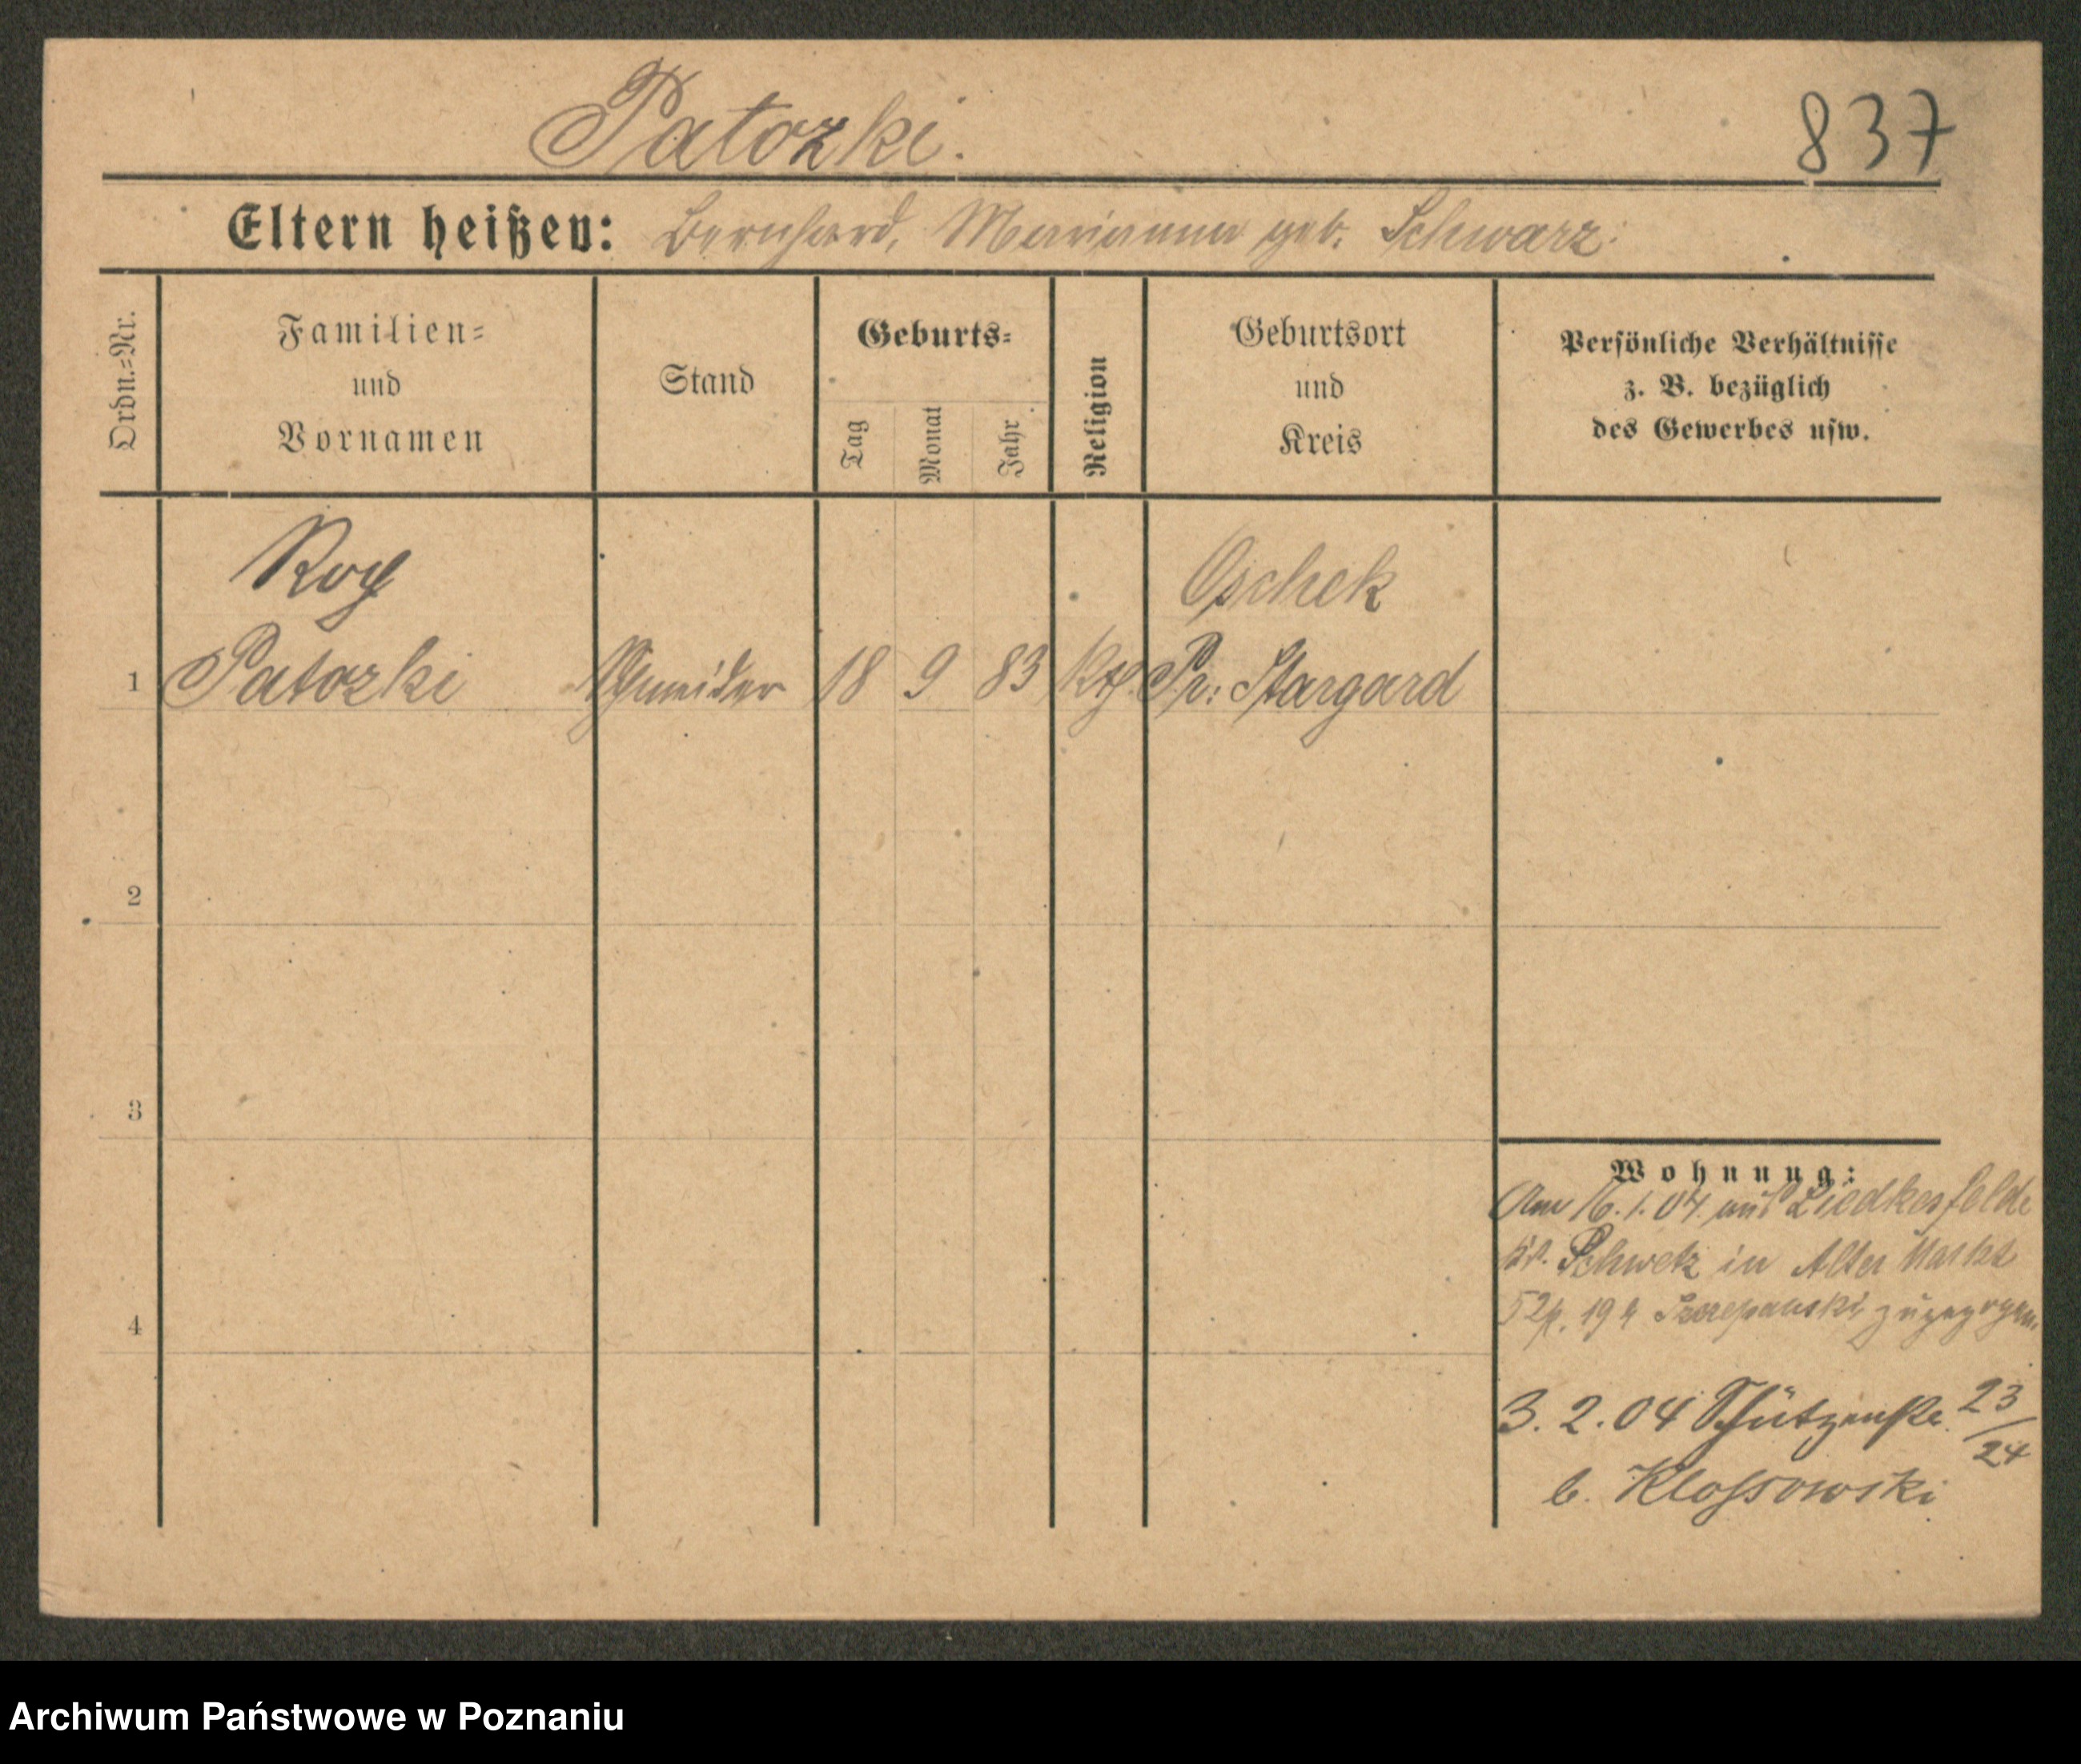 Patozki.
837
Eltern heißen: Bernhard, Marianna geb. Schwarz.
Ordn.-Nr.
Familien-
und
Vornamen
Stand
Geburts-
Tag
Monat
Jahr
Religion
Geburtsort
und
Kreis
Persönliche Verhältnisse
z. B. bezüglich
des Gewerbes usw.
Roch
Oschek
1 Patozki Schneider 18 9 83 kth. Pr: Stargard
2
3
4
Wohnung:
Am 16.1.04. aus Liedkesfelde
Kr. Schwetz in Alter Markt
52 19 Szczepanski, zugezogen.
3.2.04 Schützenstr. 23/24
b. Klossowski
Archiwum Państwowe w Poznaniu